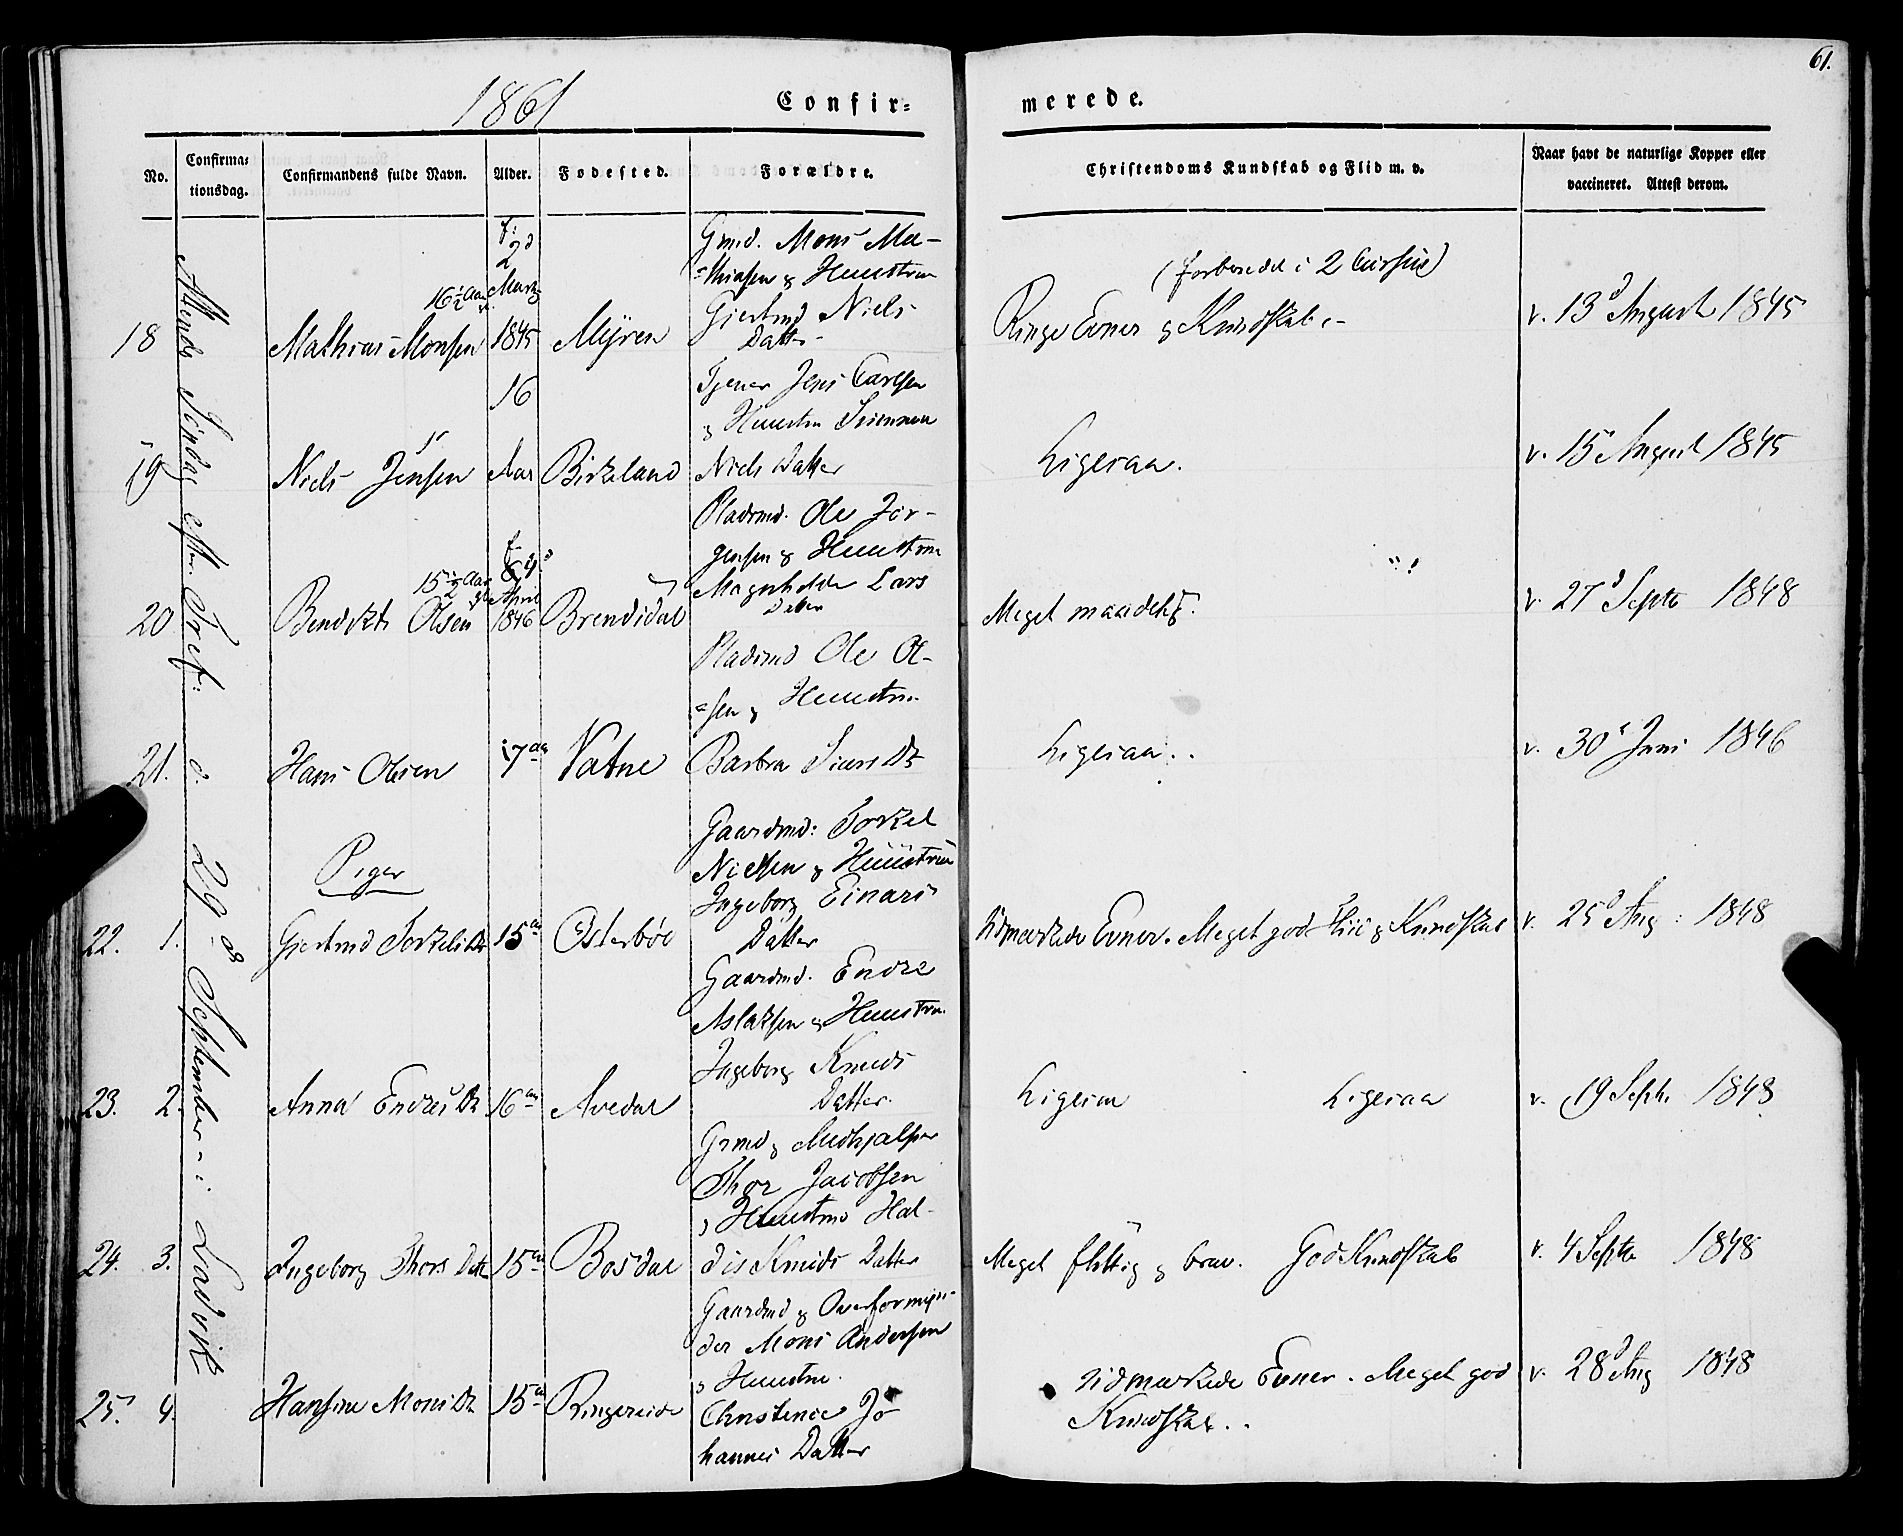 61.
1861
Confir=
merede.
No.
Confirma=
tionsdag.
Confirmandens fulde Navn.
Alder.
Fødested.
Forældre.
Christendoms Kundskab og Flid m. v.
Naar havt de naturlige Kopper eller
vaccineret. Attest derom.
18
Mathias Monsen
16½ Aar
f:
2d
Marts
1845
Myren
Grmd. Mons Ma-
=thiasen & Huustru
Giertrud Niels
Datter
(forberedet i 2 Cursus)
Ringe Evner & Kundskab
v. 13d August 1845
19
Niels Jensen
16
Aar
Birkeland
Tjener Jens Carlsen
& Huustru
Niels Datter
Ligesaa.
v. 15 August 1845
20
Olsen
15½ Aar
f.
April
1846
Brendidal
Pladsmd. Ole Jør-
gensen & Huustru
Lars
Datter
Meget maadelig.
v. 27d Septb 1848
21.
Hans Olsen
17 aa
Vatne
Pladsmd Ole Ol-
=sen & Huustru
Barbra
Ligesaa.
v. 30d Juni 1846
Piger
22. 1.
Giertrud Torkels Dr
15 aa
Osterbøe
Gaardmd: Torkel
Nielsen & Huustru
Ingeborg Einars
Datter
Udmærkede Evner. Meget god Flid & Kundskab
v. 25d Aug: 1848
23. 2.
Anna Endres Dr
16 aa
Avedal
Gaardmd. Endre
Aslaksen & Huustru
Ingeborg Knuds
Datter.
Ligesaa Ligesaa
v. 19 Septb. 1848
24. 3.
Ingeborg Thors Datt
15 aa
Bosdal
Grmd & Medhjælper
Thor Jacobsen
& Huustru Hal-
dis Knuds Datter
Meget flittig & brav. God Kundskab
v. 4 Septb 1848
25. 4.
Hansine Mons Dr
15 aa
Ringereide
Gaardmd & Overformyn-
der Mons Andersen
& Huustru
Christence Jo
hannes Datter
Udmærkede Evner. Meget god
Kundskab.
v. 28d Aug 1848
Søndag efter Tref: d. 29de September i Ladvik